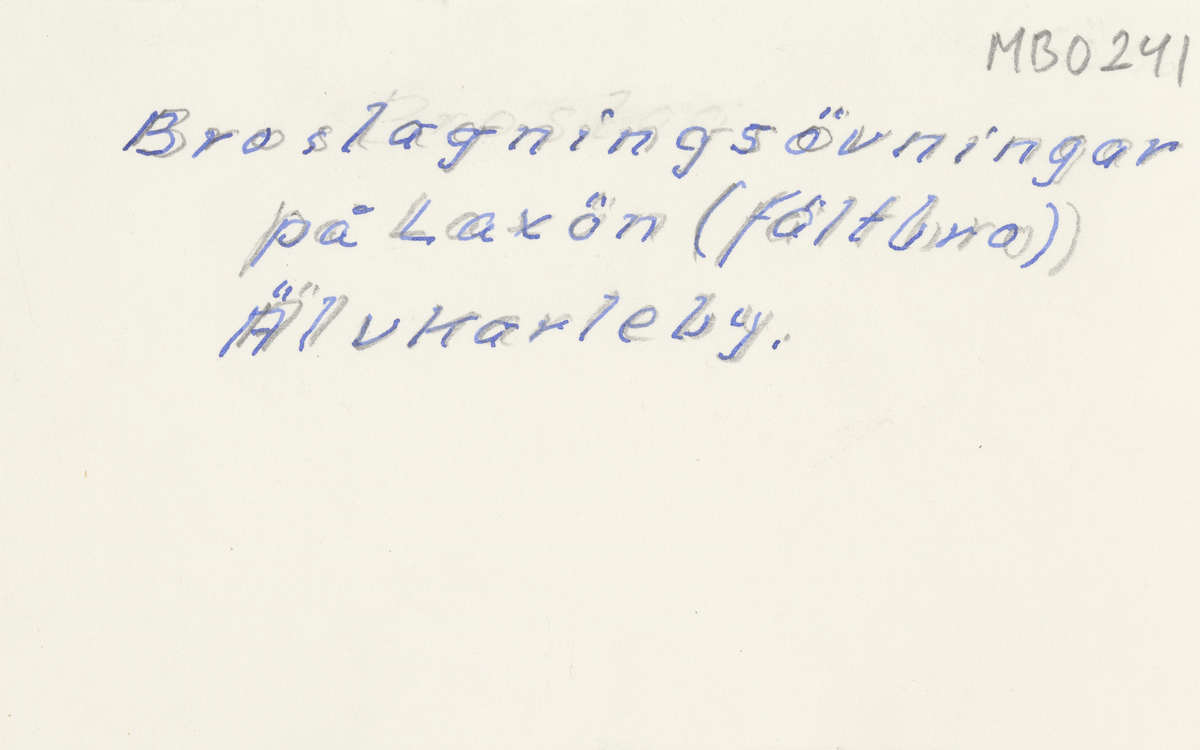 MBO241
Broslagningsövningar
på Laxön (fältbro)
Älvkarleby.